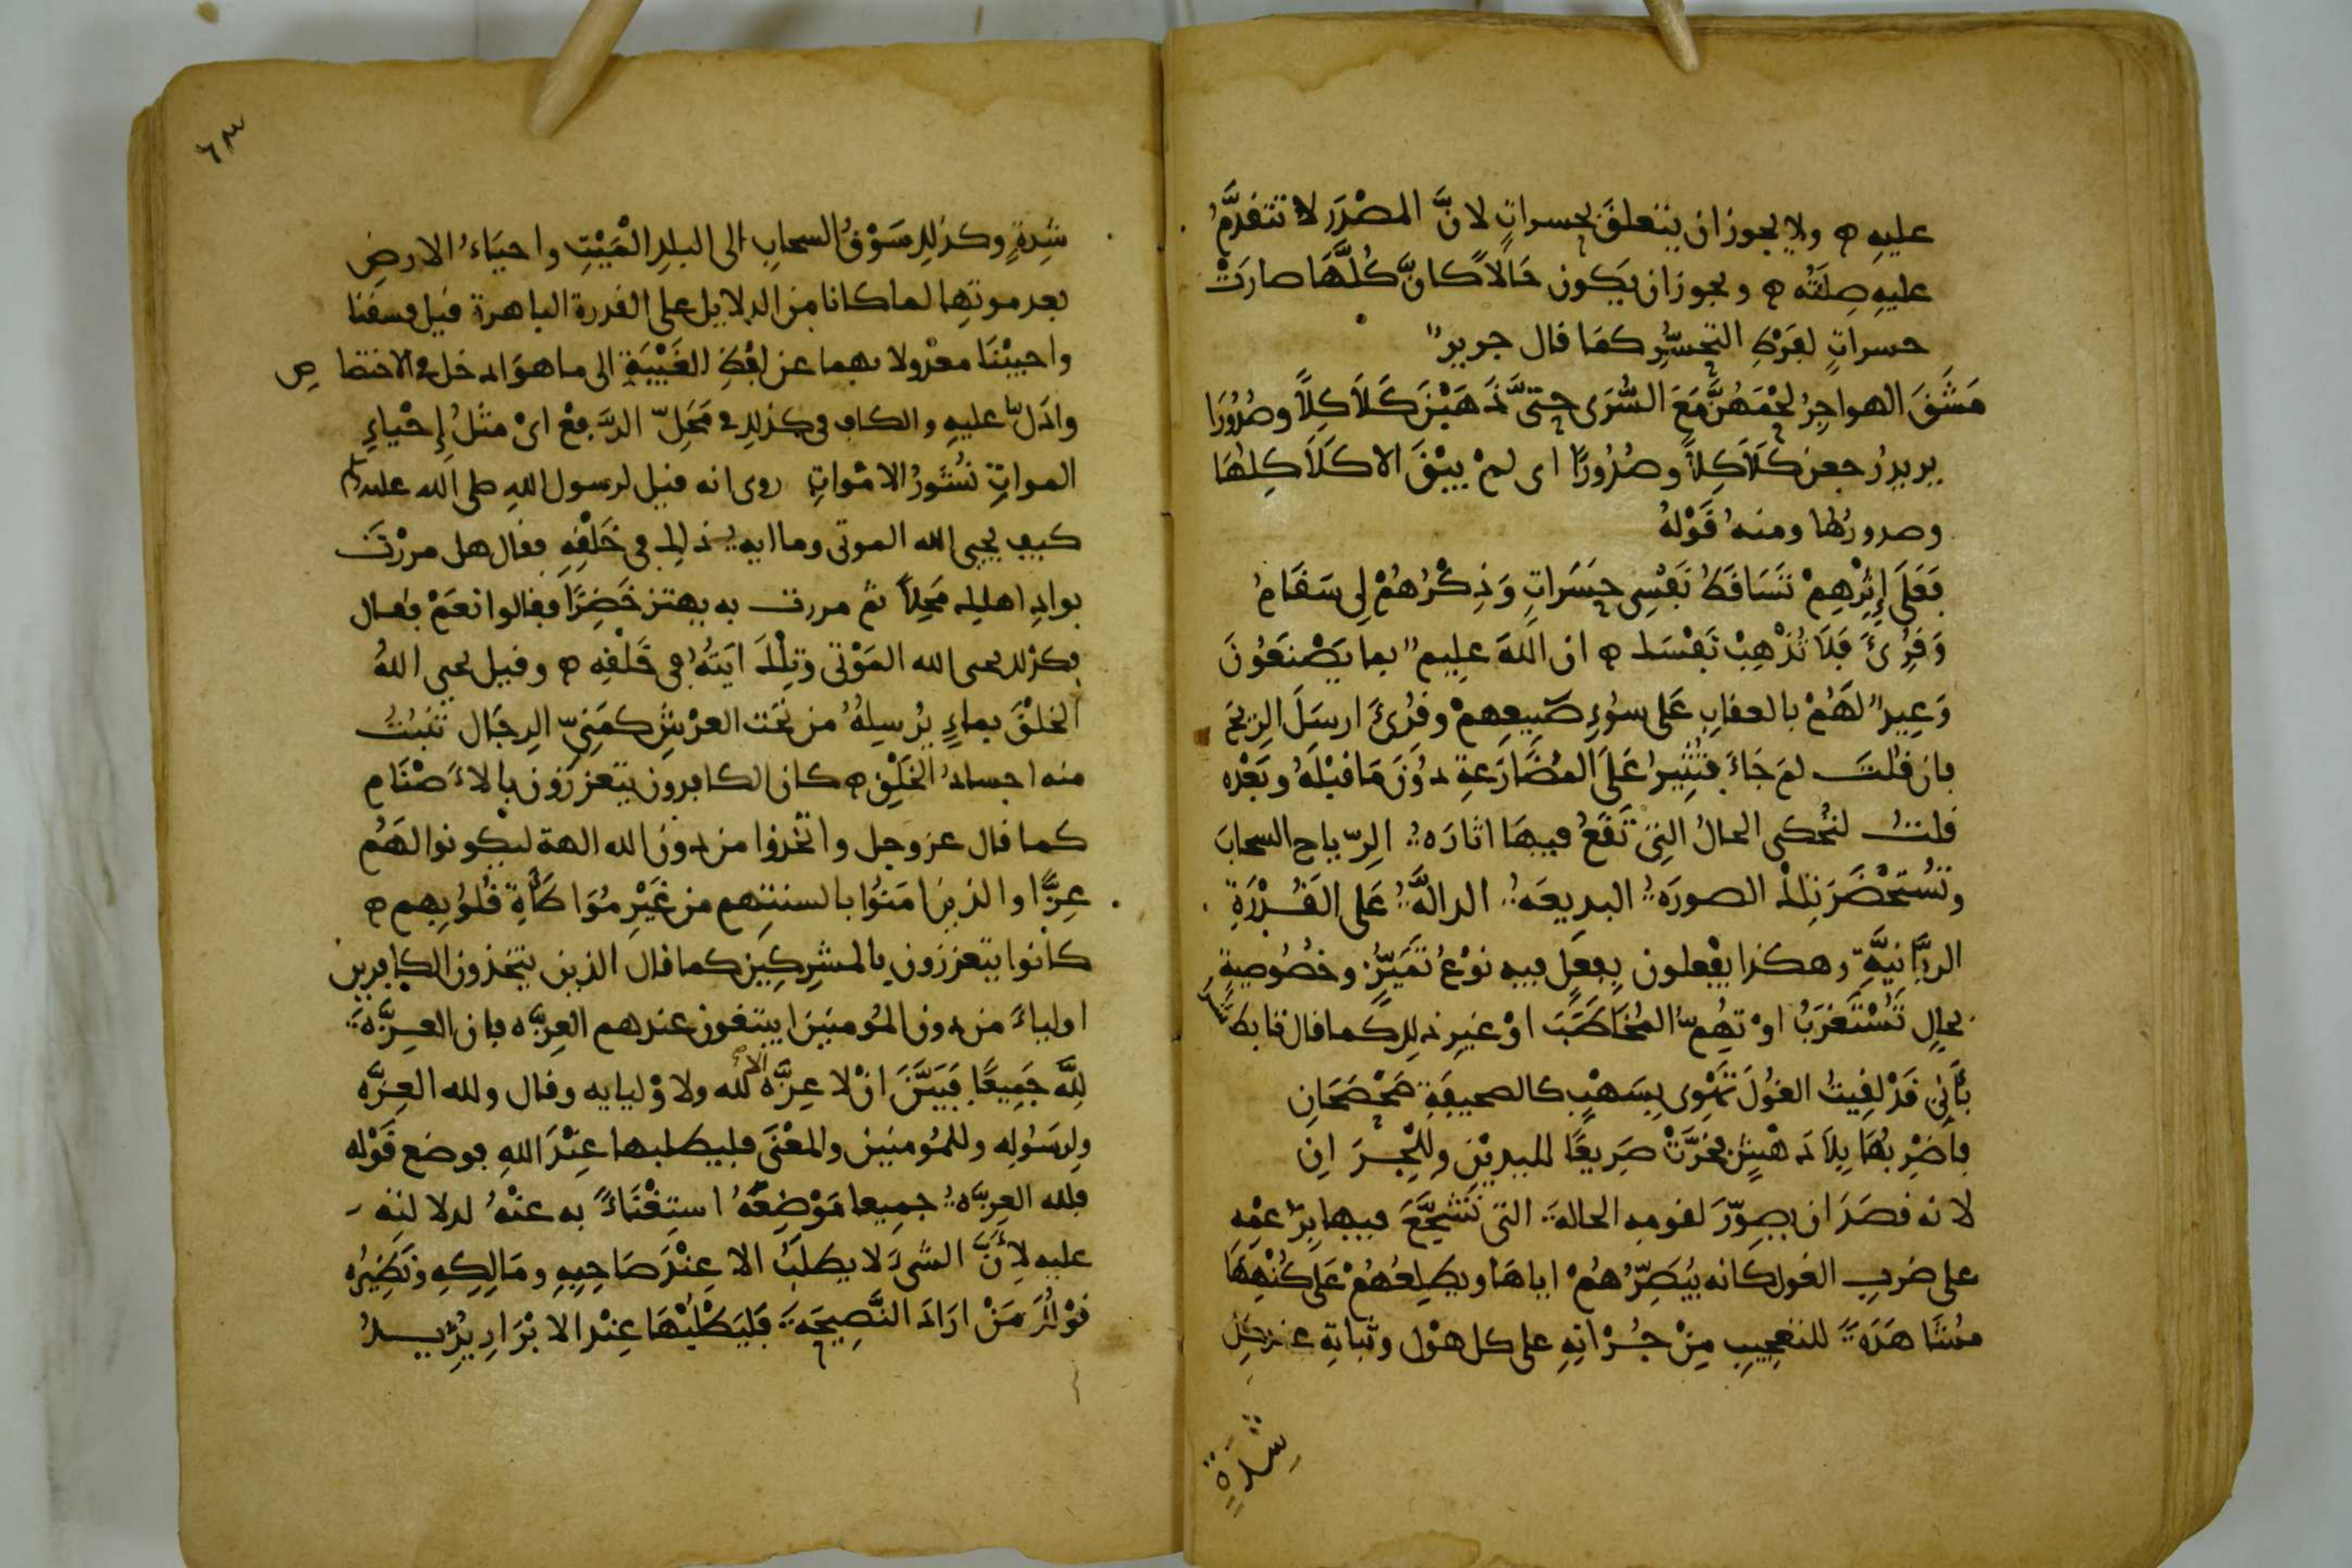 عليه ۞ ولا يجوز ان يتعلق بحسرات لانّ المصدر لا تتقدّم
عليه صلته ۞ ويجوز ان يكون حالا كانّ كلّها صارت
حسرات لفرط التحسّر كما قال جرير
مشق الهواجر لحمهنّ مع السّرى حتّى ذهبن كلاكلا وصدورا
يريد رجعن كلاكلا وصدورا اى لم يبق الا كلاكلها
وصدورها ومنه قوله
فعلى إثرهم تساقط نفسى حسرات وذكرهم لى سقام
وقرئ فلا تذهب نفسك ۞ ان الله عليم بما يصنعون
وعيد لهم بالعقاب على سوء صنيعهم وقرئ ارسل الريح
فان قلت لم جاء فتثير على المضارعة دون ما قبله وبعده
قلت لتحكى الحال التى تقع فيها اثارة الرّياح السحاب
وتستحضر تلك الصورة البديعة الدالّة على القدرة
الربّانيّة وهكذا يفعلون بفعل فيه نوع تميّز وخصوصية
بحال تستغرب او تهمّ المخاطب او غير ذلك كما قال تابط شرّا
بأنى قد لقيت الغول تهوى بسهب كالصحيفة صحصحان
فاضربها بلا دهش فخرّت صريعا لليدين وللجران
لانه قصد ان يصوّر لقومه الحالة التى تشجّع فيها بزعمه
على ضرب الغول كانه يبصّرهم اياها ويطلعهم على كنهها
مشاهدة للتعجيب من جرأته على كل هول وثباته عند كل
شدة
٦٣
شدة وكذلك سوق السحاب الى البلد الميت واحياء الارض
بعد موتها لما كانا من الدلايل على القدرة الباهرة قيل فسقنا
واحيينا معدولا بهما عن لفظ الغيبة الى ما هو ادخل فى الاختصاص
وادلّ عليه والكاف فى كذلك فى محلّ الرّفع اى مثل إحياء
الموات نشور الاموات روى انه قيل لرسول الله صلى الله عليه وسلم
كيف يحيى الله الموتى وما اية ذلك فى خلقه فقال هل مررت
بواد اهلك محلا ثم مررت به يهتز خضرا فقالوا نعم فقال
فكذلك يحيى الله الموتى وتلك ايته فى خلقه ۞ وقيل يحيى الله
الخلق بماء يرسله من تحت العرش كمنىّ الرجال تنبت
منه اجساد الخلق ۞ كان الكافرون يتعززون بالاصنام
كما قال عز وجل واتخذوا من دون الله الهة ليكونوا لهم
عزّا والذين امنوا بالسنتهم من غير مواطأة قلوبهم ۞
كانوا يتعززون بالمشركين كما قال الذين يتخذون الكافرين
اولياء من دون المومنين ايبتغون عندهم العزّة فان العزّة
لله جميعا فبيّن ان لا عزّة الا لله ولاوليايه وقال ولله العزّة
ولرسوله وللمومنين والمعنى فليطلبها عند الله فوضع قوله
فلله العزّة جميعا موضعه استغناء به عنه لدلالته
عليه لأنّ الشىء لا يطلب الا عند صاحبه ومالكه ونظيره
قولك من اراد النّصيحة فليطلبها عند الابرار يريد